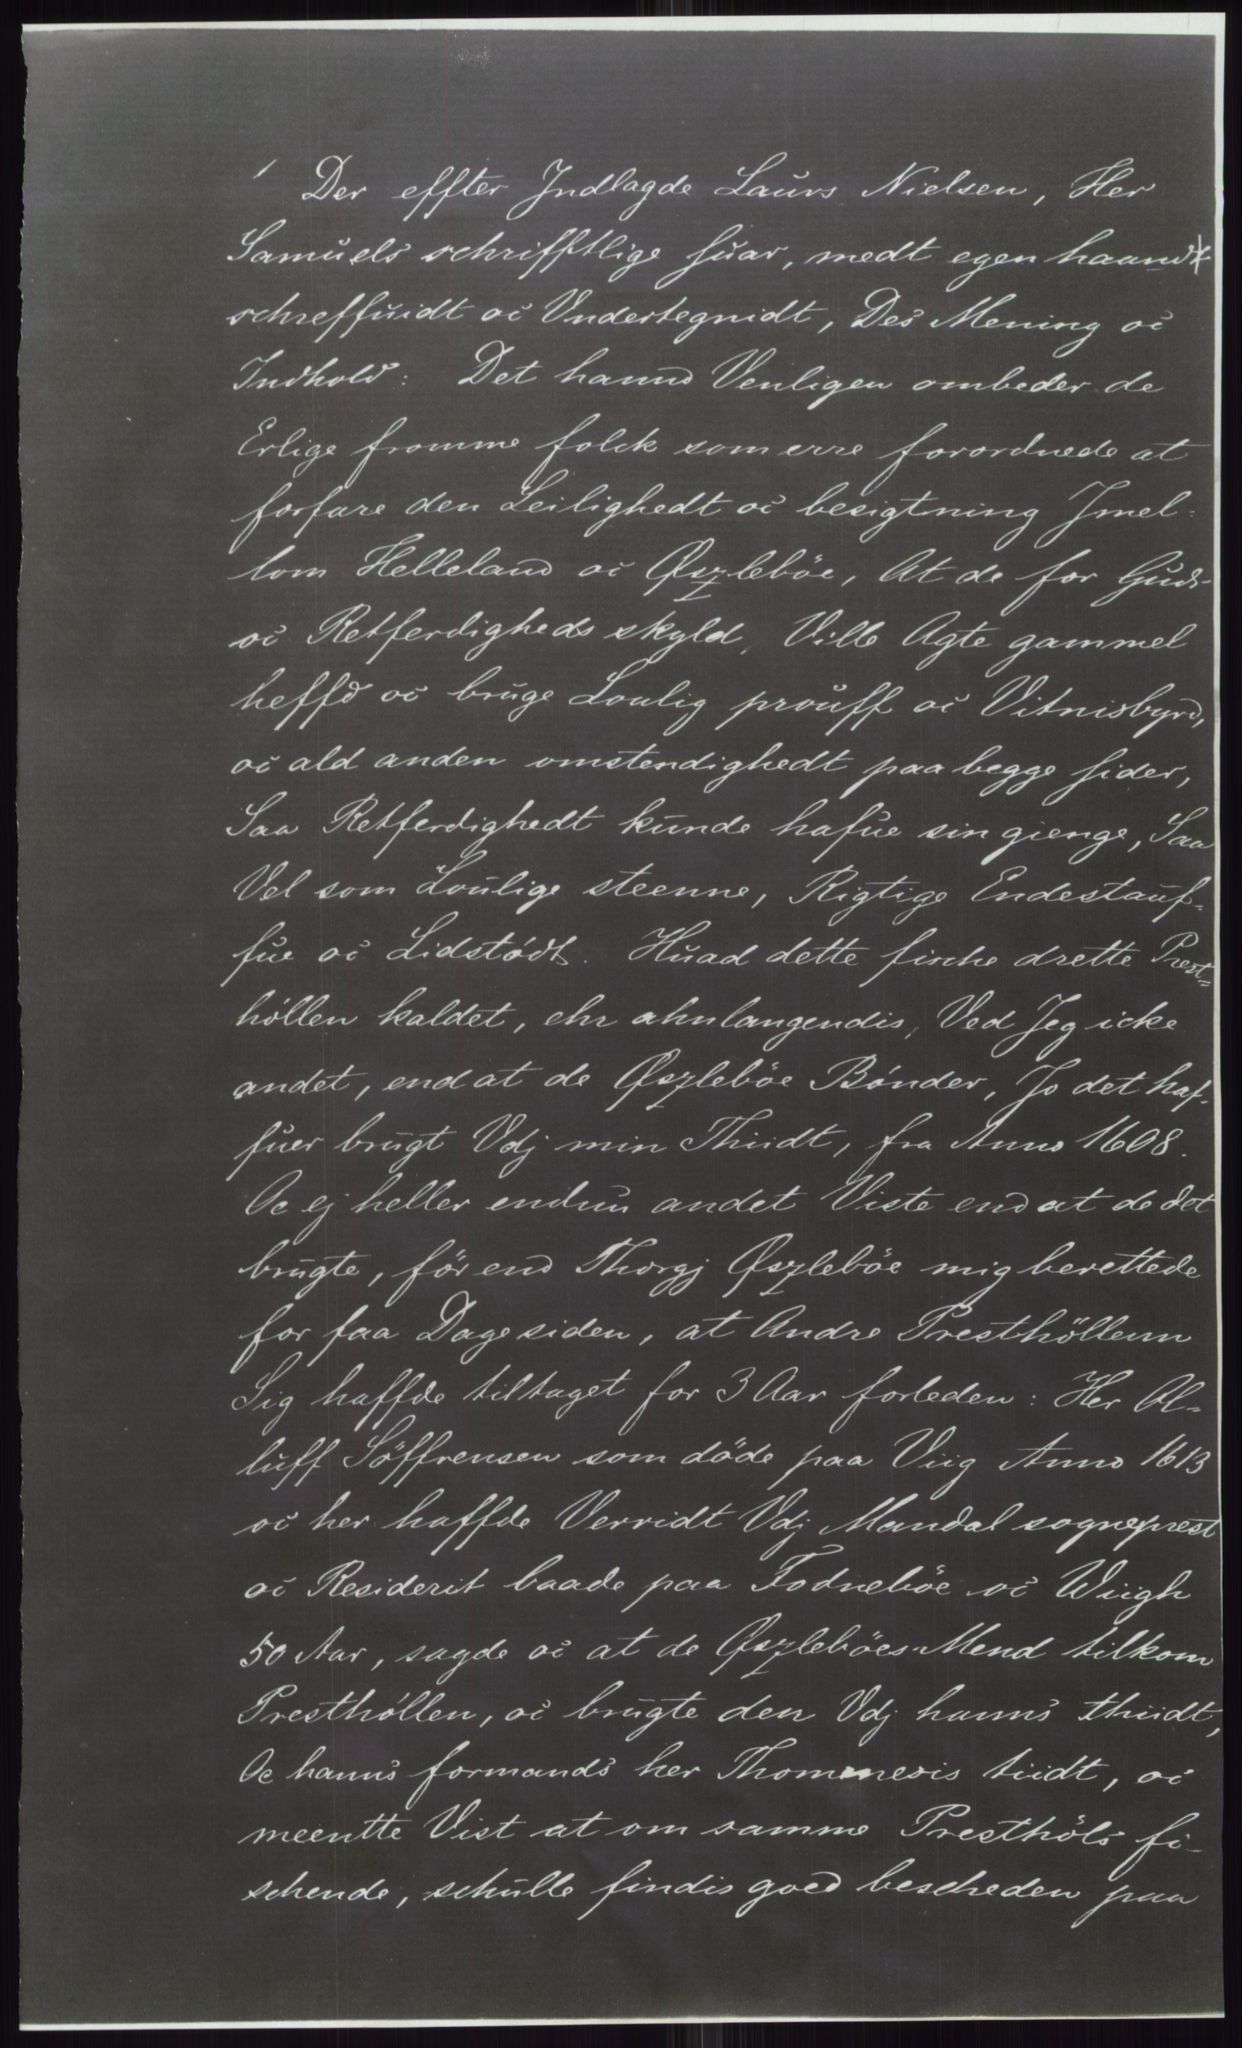 Der effter Indlagde Laurs Nielsen, Her
Samuels schrifftlige suar, medt egen haand
schreffuidt oc Vndertegnidt, Des Mening oc
Indhold: Det hannd Venligen ombeder de
Erlige fromme folck som erre forordnede at
forfare den Leilighedt oc besigtning Imel-
lom Helleland oc Øszleböe, At de for Guds
oc Retferdigheds skyld, Ville Agte gammel
heffd oc bruge Loulig prouff oc Vitnisbyrd,
oc ald anden omstendighedt paa begge sider,
Saa Retferdighedt kunde hafue sin gienge, Saa
Vel som Loulige steenne, Rigtige Endestauf-
fue oc Lidstødt. Huad dette fische drette Prest-
höllen kaldet, ehr ahnlangendis, Ved Jeg icke
andet, end at de Øszleböe Bönder, Jo det haf-
fuer brugt Vdj min Thiidt, fra Anno 1608.
Oc ej heller endnu andet Viste end at de det
brugte, för end Thorgj Øszleböe mig berettede
for faa Dage siden, at Andre Presthöllenn
Sig haffde tiltaget for 3 Aar forleden: Her Ol-
luff Söffrensen som döde paa Viig Anno 1613
oc her haffde Verridt Vdj Mandal sogneprest
oc Residerit baade paa Fodneböe oc Wiigh
50 Aar, sagde oc at de Øszleböes Mend tilkom
Presthöllen, oc brugte den Vdj hanns thiidt,
Oc hanns formands her Thommesis tiidt, oc
meentte Vist at om samme Presthöls fi-
schende, schulle findis goed bescheden paa